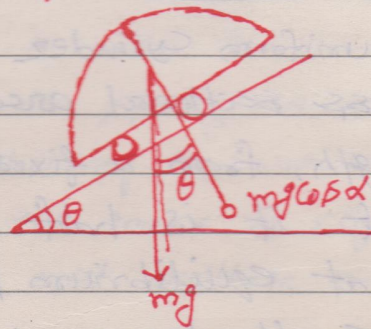 θ
θ
mgcosα
mg